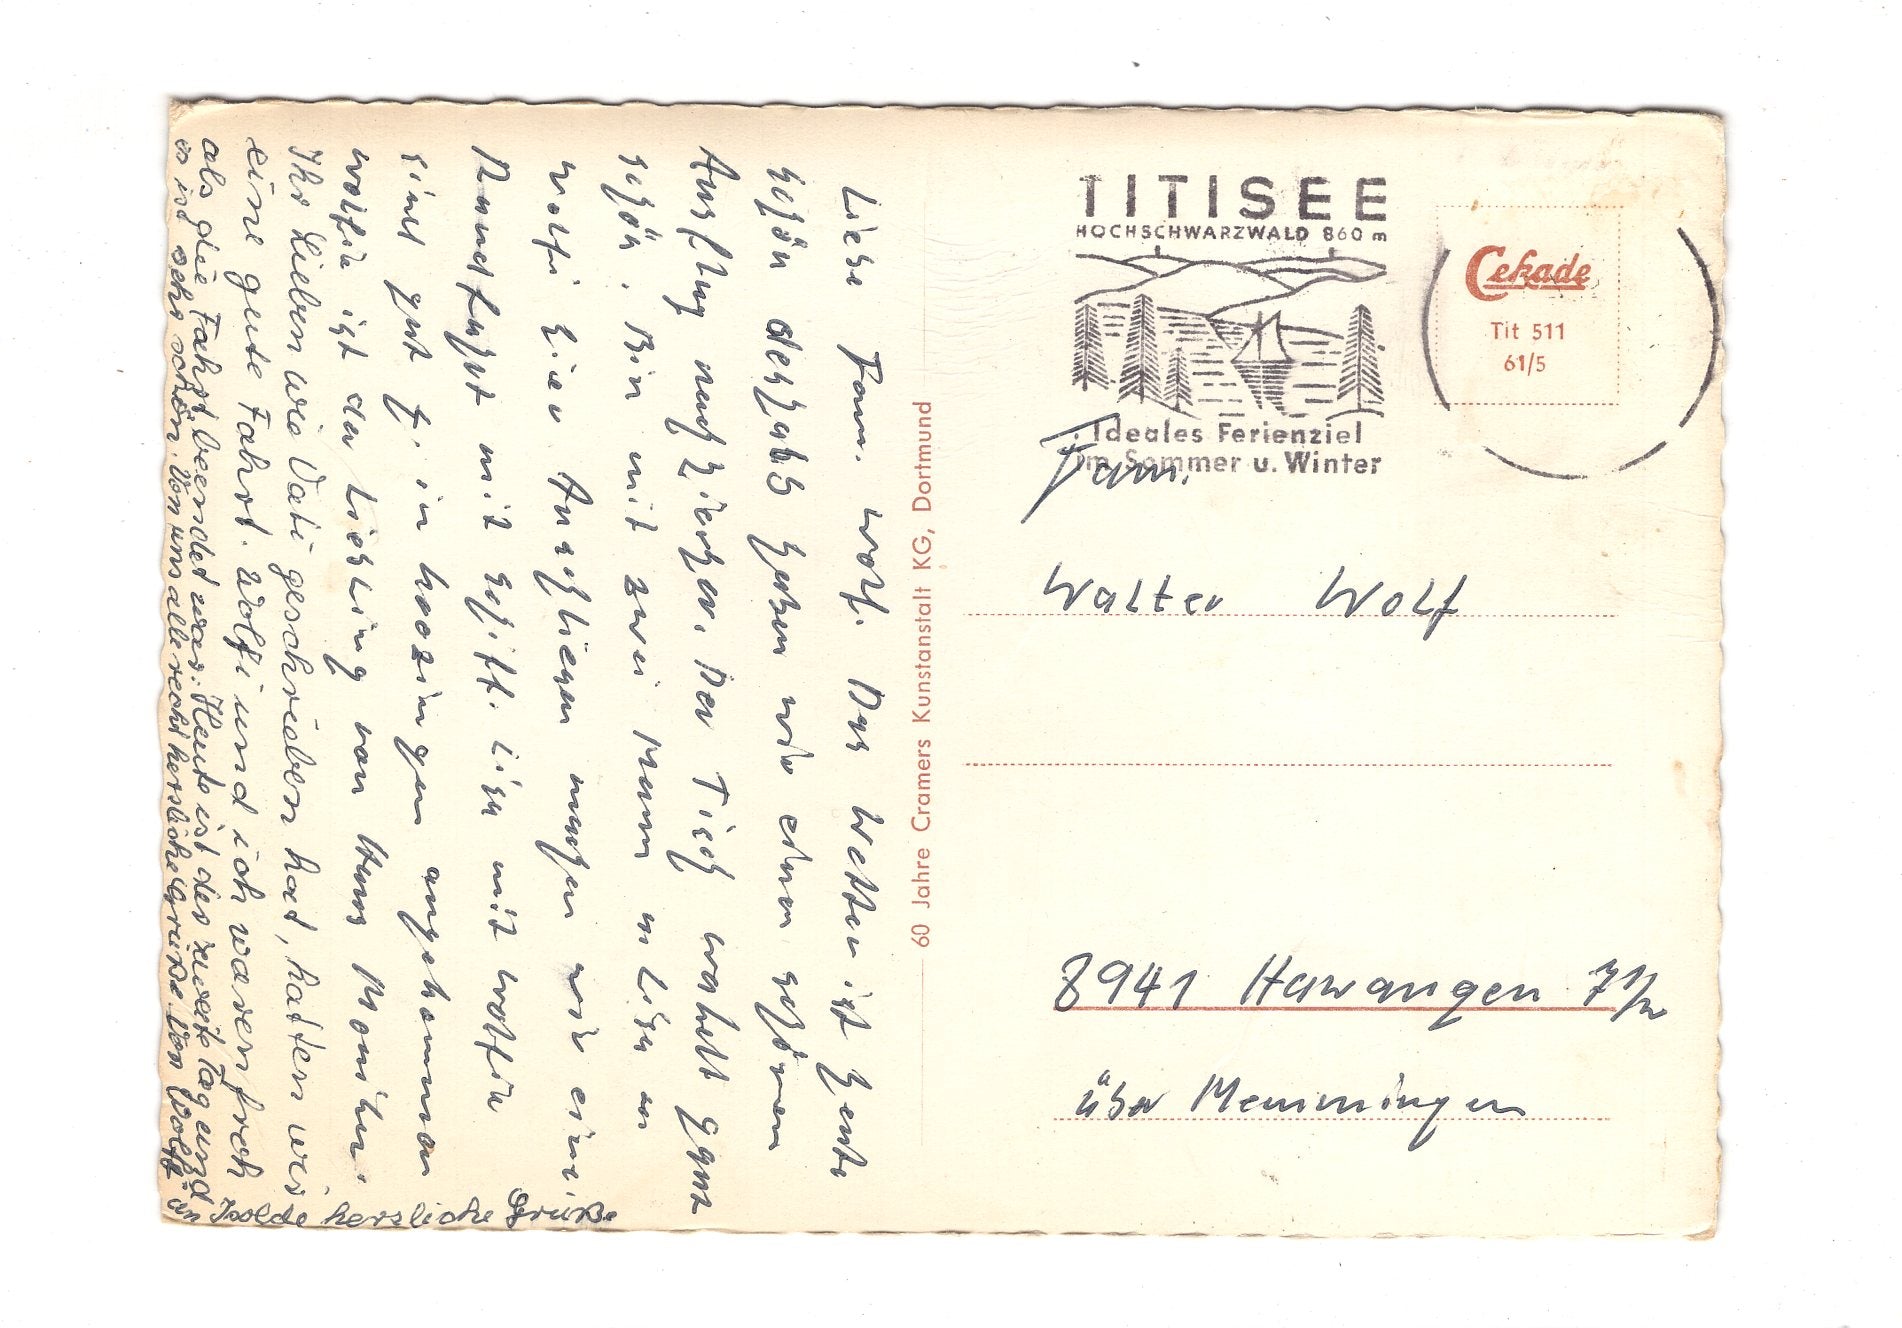 Liebe Fam. Wolf. Das Wetter ist heute
schön deshalb haben wir einen schönen
Ausflug nach
schön. Bin mit zwei Mann in
Wolfi hier Anschliesen machen wir eine
Rundfahrt mit Schiff. Lisa mit Wolfin
sind gut in angekommen
Wolfi ist der Liebling von Monika.
Ihr Lieben wie Vati geschrieben hat, hatten wir
eine gute Fahrt. Wolfi und ich waren froh
als die Fahrt beendet war. Heute ist der zweite Tag und
es ist sehr schön. Von uns alle recht herzliche Grüße. Von Wolfi
an Isolde herzliche Grüße
60 Jahre Cramers Kunstanstalt KG, Dortmund
TITISEE
HOCHSCHWARZWALD 860 m
Ideales Ferienziel
im Sommer u. Winter
Cekade
Tit 511
61/5
Fam.
Walter Wolf
8941 Hawangen 7 1/2
über Memmingen